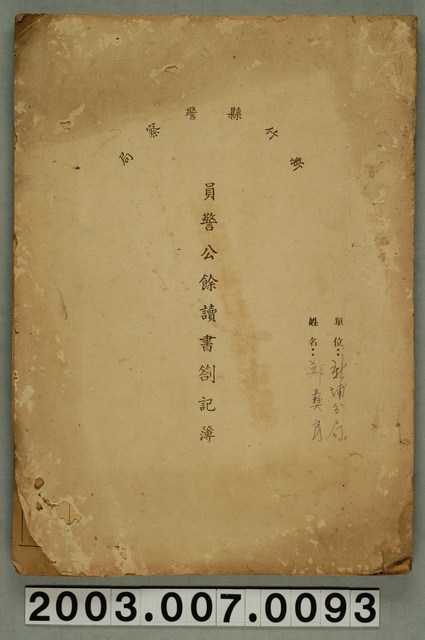 新竹縣警察局
員警公餘讀書劄記簿
單位：新埔分局
姓名：鄭
2003.007.0093